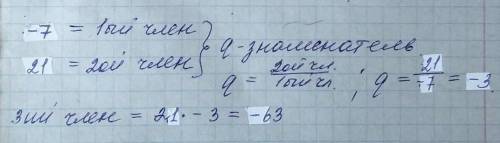 -7 = 1ый член
21 = 2ой член } q - знаменатель
q = 2ой чл. / 1ый чл. ; q = 21 / -7 = -3
3ий член = 21 · -3 = -63